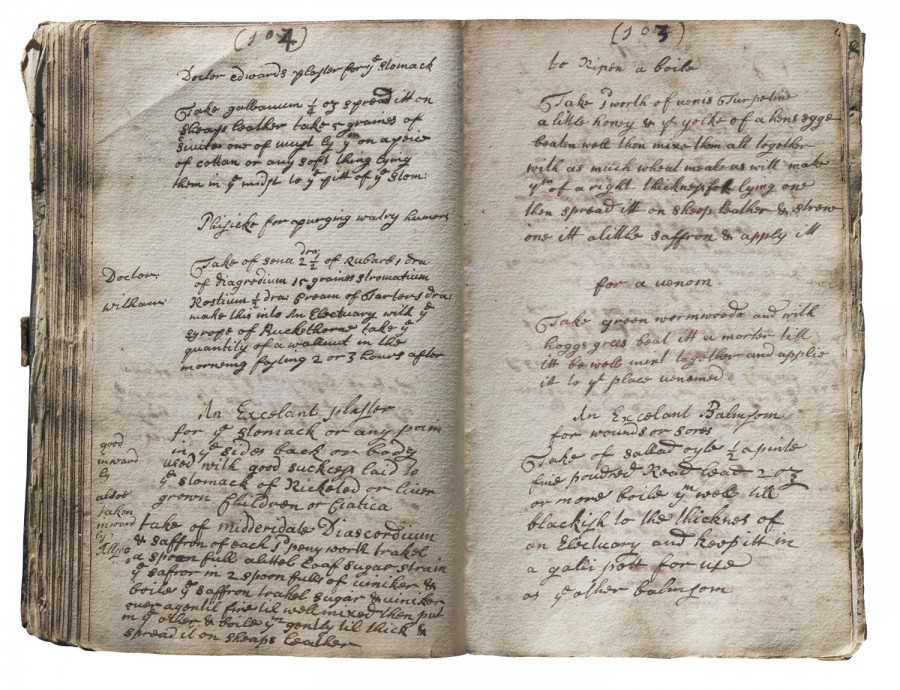 (104)
Doctor edwards plaster for yᵉ stomack
Take galbanum ¼ oz spread itt on
sheaps leather take 5 graines of
siviter one of must ly yᵐ on a peic
of cottan or any soft thing lying
them in yᵉ midst to yᵉ pitt of yᵉ stom:
Phisicke for a purging watry humors
Doctor:
Williams
Take of sena dra: 2½ of Rubarb 1 dra
of diagredium 15 graines stromatium
Rostium ½ dra: Cream of Tarter 1 dra:
make this into An Electuary with yᵉ
syrope of Buckthorne take yᵉ
quantity of a wallnut in the
morneing fasting 2 or 3 hours after
An Excelant plaster
for yᵉ stomack or any pain
in yᵉ sides back or body
used with good suckcess laid to
yᵉ stomack of Ricketed or liver
grown Children or Ciatica
good
inward
ly
allsoe
taken
inward
ly
take of midderidate Diascordium
& saffron of each 1ᵈ peny worth trakel
a spoon full a littel Loaf sugar strain
yᵉ saffron in 2 spoon fulls of viniker &
boile yᵉ saffron trakel sugar & viniker
over a gentil fire til well mixed then put
in yᵉ other & boile yᵐ gently til thick &
spread it on sheaps leather
(103)
to Ripen a boile
Take 1ᵈ worth of venis Turpetine
a little honey & yᵉ yolke of a hens egge
beaten well then mixe them all together
with as much wheat meale as will make
yᵐ of a right thickness for lying one
then spread itt on sheep leather & strew
one itt a little saffron & apply itt
for a venom
Take green wormwoode and with
hoggs grees beat itt a morter till
itt be well mixt together and applie
it to yᵉ place venomed
An Excelant Balmsom
for wounds or sores
Take of sallad oyle ½ a pinte
fine poudred Read Lead 2 oz
or more boile yᵐ well till
blackish to the thicknes of
an Electuary and keep itt in
a galli pott for use
as yᵉ other balmsom